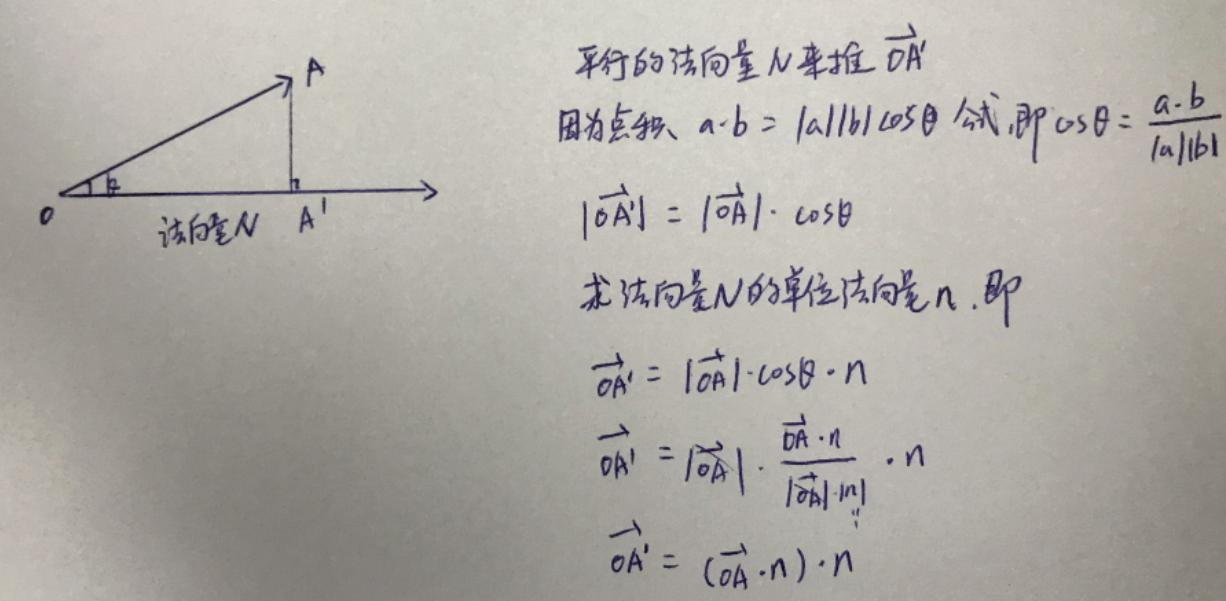 A
θ
O
法向量N
A'
平行的法向量N来推 \overrightarrow{OA'}
因为点积、a·b = |a||b|cosθ 公式,即cosθ = \frac{a·b}{|a||b|}
|\overrightarrow{OA'}| = |\overrightarrow{OA}|· cosθ
求法向量N的单位法向量n.即
\overrightarrow{OA'} = |\overrightarrow{OA}|·cosθ·n
\overrightarrow{OA'} = |\overrightarrow{OA}|·\frac{\overrightarrow{OA}·n}{|\overrightarrow{OA}|·|n|}·n
\overrightarrow{OA'} = (\overrightarrow{OA}·n)·n